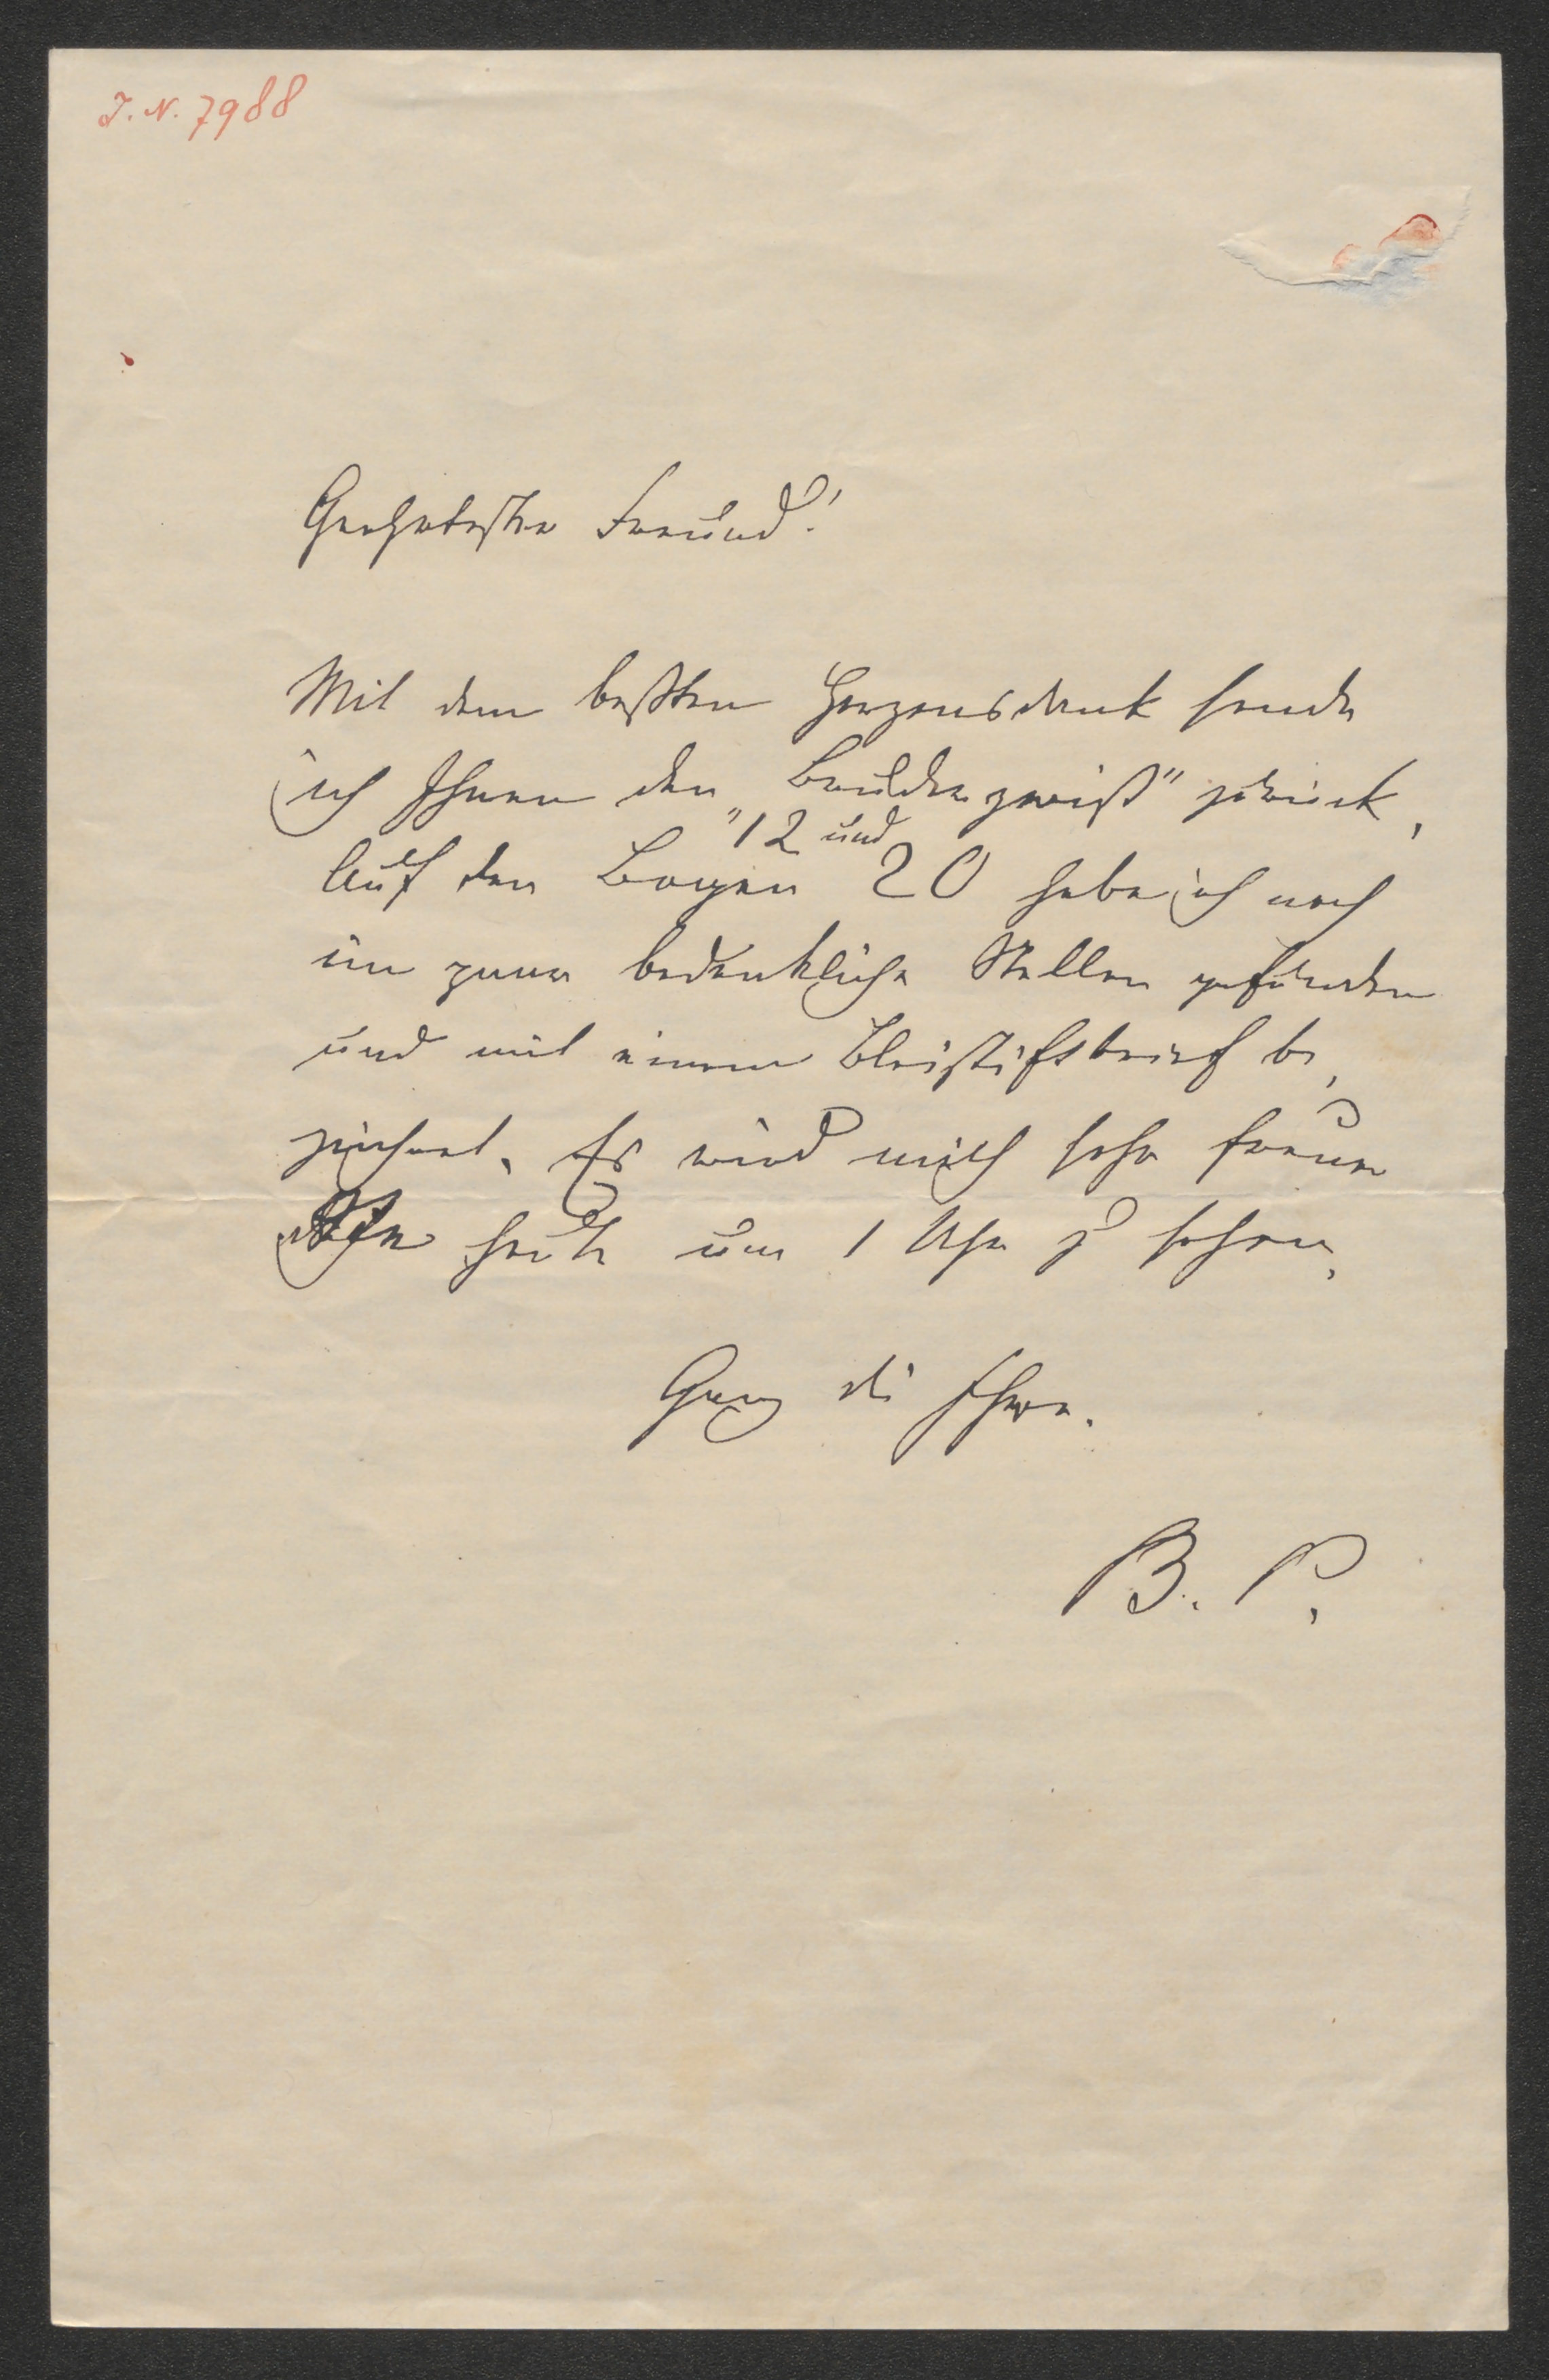 J. N. 7988
Geehrtester Freund!
Mit dem beßten Herzensdank sende
ich Ihnen den „Bruderzwist" zurück,
12 und
Auf den Bogen 20 habe ich noch
bedenkliche Stellen gefunden
und mit einem Bleistift be
zeichnet. Es wird mich sehr freuen
Sie heute um 1 Uhr zu sehen.
Ganz die Ihre.
B. P.